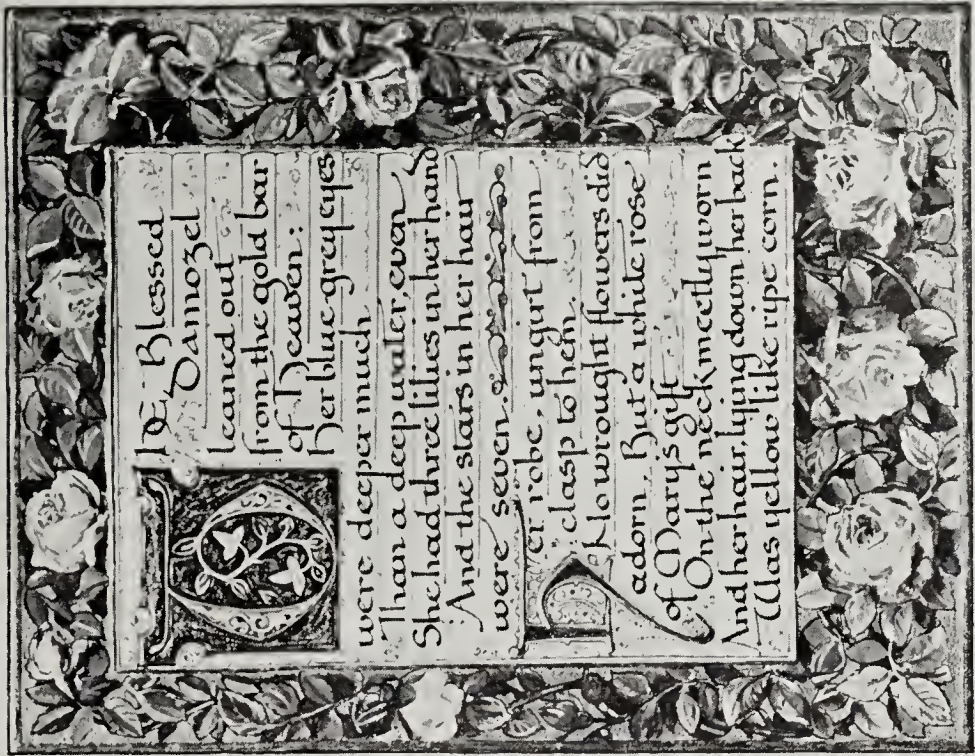 THE Blessed
Damozel
leaned out
from the gold bar
of Heaven:
Her blue-grey eyes
were deeper much
Than a deep water, even
She had three lilies in her hand
And the stars in her hair
were seven.
Her robe, ungirt from
clasp to hem
No wrought flowers did
adorn, But a white rose
of Mary's gift
On the neck meetly worn
And her hair, lying down her back
Was yellow like ripe corn.